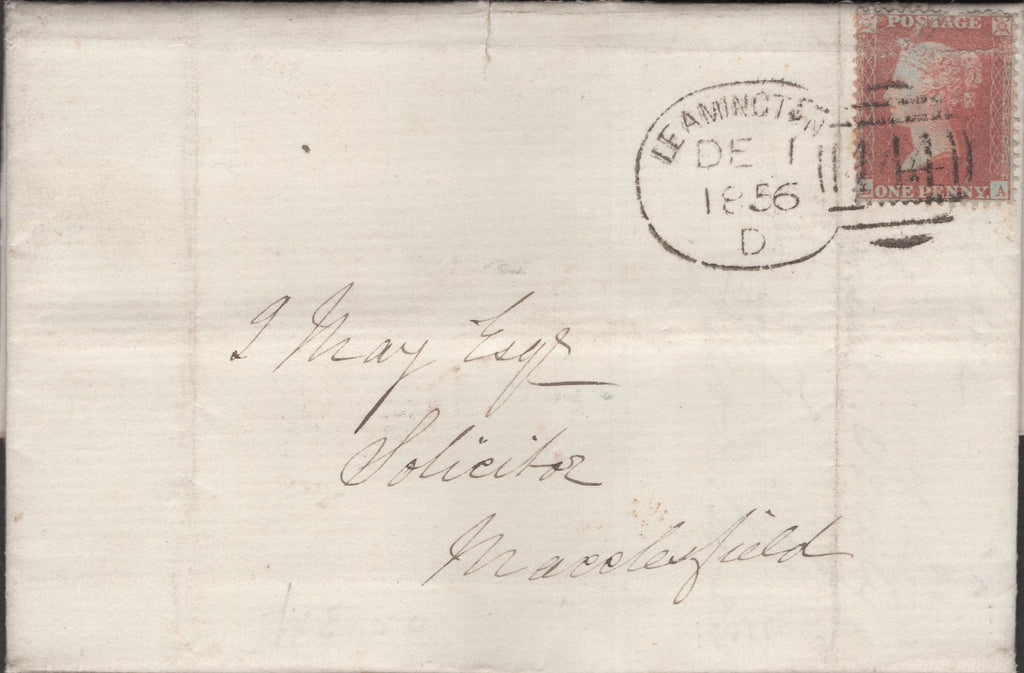 POSTAGE
LEAMINGTON
DE 1
1856
D
444
ONE PENNY
A
J May Esqr
Solicitor
Macclesfield